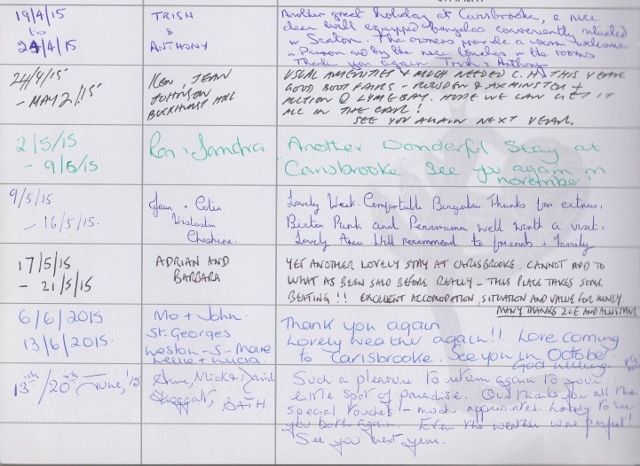 19/4/15
to
24/4/15
TRISH
&
ANTHONY
Another great holiday at Carisbrooke, a nice
clean well equipped bungalow conveniently situated
in Seaton. The owners provide a warm welcome
in person and by the nice touches in the rooms
Thank you again Trish & Anthony
24/4/15
- MAY 2/15
KEN, JEAN
JOHNSON
BUCKHURST HILL
USUAL AMENITIES & MUCH NEEDED C.H. THIS YEAR
GOOD BOOT FAIRS - & AXMINSTER &
AUCTION @ LYME BAY. HOPE WE CAN GET IT
ALL IN THE CAR!
SEE YOU AGAIN NEXT YEAR.
2/5/15
- 9/5/15
Ron & Sandra
Another Wonderful Stay at
Carisbrooke See you again in
november
9/5/15
- 16/5/15.
Jean + Colin
Cheshire.
Lovely Week. Comfortable Bungalow Thanks for extras.
Bicton Park and Pecorama well worth a visit.
Lovely Area Will recommend to friends + family
17/5/15
- 21/5/15
ADRIAN AND
BARBARA
YET ANOTHER LOVELY STAY AT CARISBROOKE. CANNOT ADD TO
WHAT AS BEEN SAID BEFORE REALLY - THIS PLACE TAKES SOME
BEATING!! EXCELLENT ACCOMODATION, SITUATION AND VALUE FOR MONEY
MANY THANKS ZOE AND ALISTAIR
6/6/2015
13/6/2015.
Mo + John.
St. Georges
Weston-S-Mare
Thank you again.
Lovely weather again!! Love coming
to Carisbrooke. See you in October
God willing.
13th/20th June, '15
Anne, Mick & David
BATH
Such a pleasure to return again to your
little spot of paradise. Our thanks for all the
special touches - much appreciated. Lovely to see
you both again. Even the weather was perfect!
See you next year.